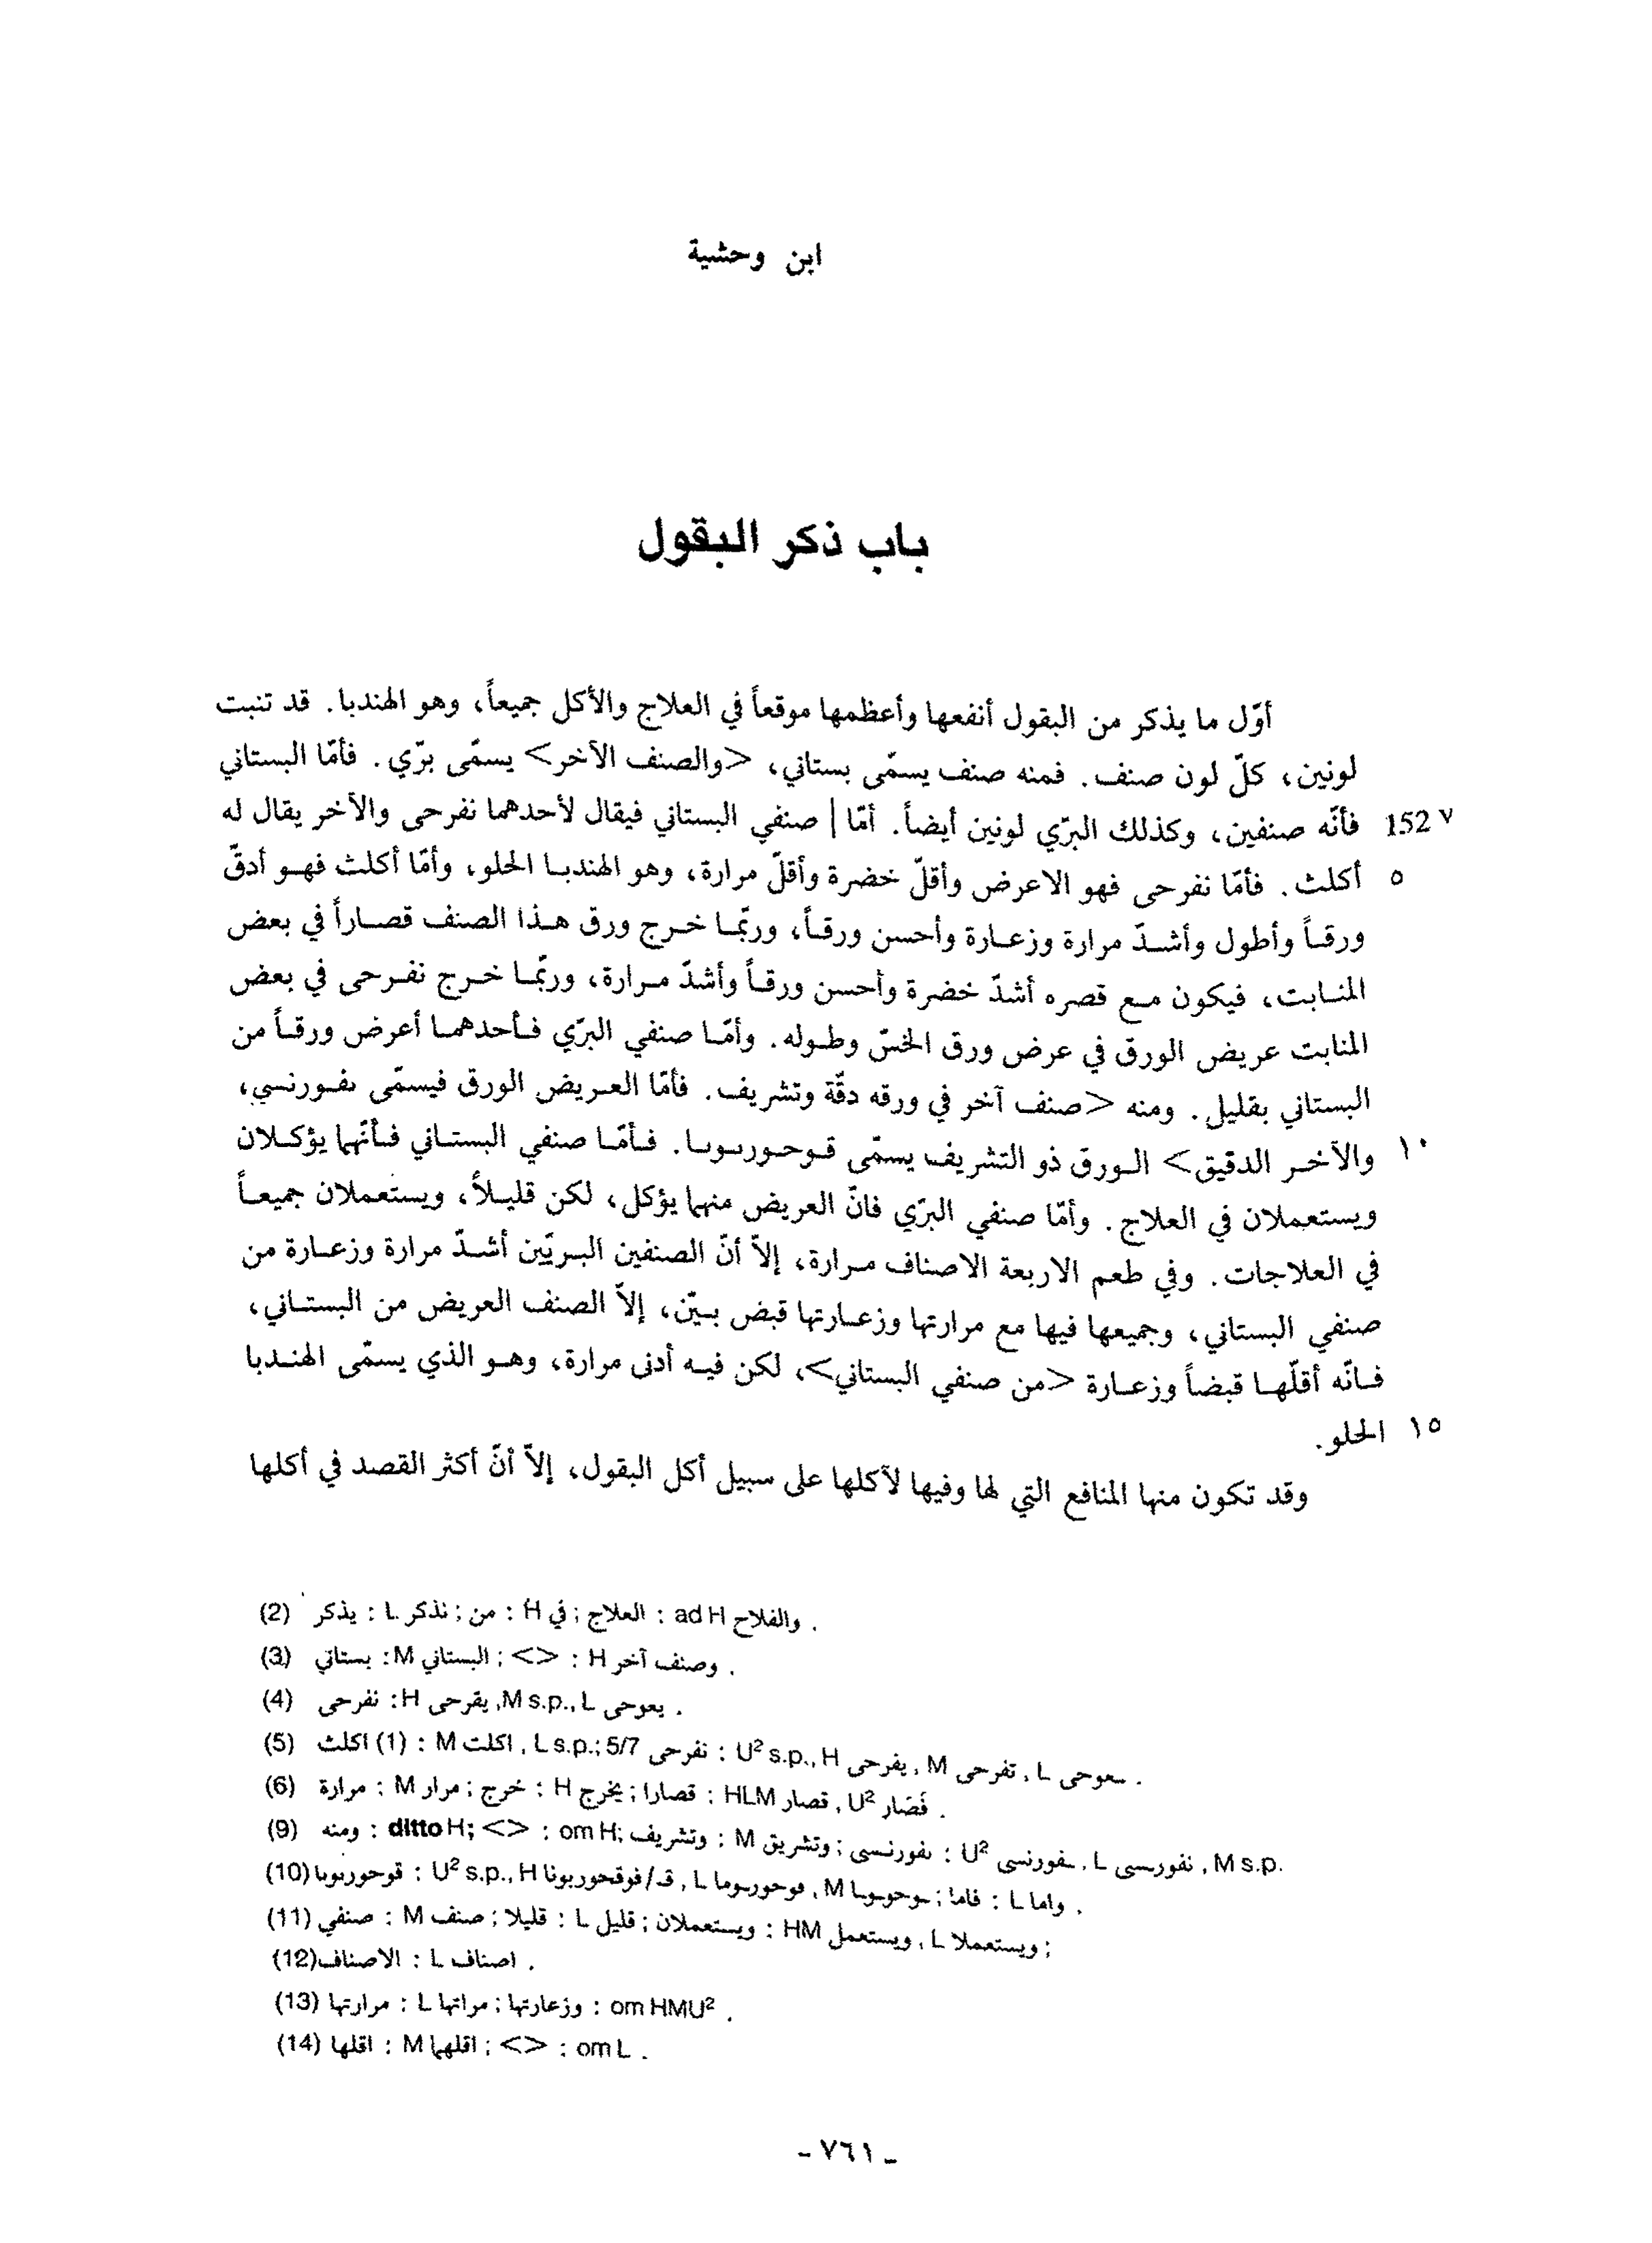 ابن وحشية
باب ذكر البقول
أوّل ما يذكر من البقول أنفعها وأعظمها موقعاً في العلاج والأكل جميعاً، وهو الهندبا. قد تنبت
لونين، كلّ لون صنف. فمنه صنف يسمّى بستاني، <والصنف الآخر> يسمّى برّي. فأمّا البستاني
152 v فأنّه صنفين، وكذلك البرّي لونين أيضاً. أمّا | صنفي البستاني فيقال لأحدهما نفرحى والآخر يقال له
٥ أكلث. فأمّا نفرحى فهو الاعرض وأقلّ خضرة وأقلّ مرارة، وهو الهندبـا الحلو، وأمّا أكلث فهـو أدقّ
ورقـاً وأطول وأشـدّ مرارة وزعـارة وأحسن ورقـاً، وربّمـا خـرج ورق هـذا الصنف قصـاراً في بعض
المنـابت، فيكون مـع قصره أشدّ خضرة وأحسن ورقـاً وأشدّ مـرارة، وربّمـا خـرج نفـرحى في بعض
المنابت عريض الورق في عرض ورق الخسّ وطـوله. وأمّـا صنفي البرّي فـأحدهمـا أعرض ورقـاً من
البستاني بقليل. ومنه <صنف آخر في ورقه دقّة وتشريف. فأمّا العـريض الورق فيسمّى ىفـورنسي،
١٠ والآخـر الدقيق> الـورق ذو التشريف يسمّى قـوحـورىـوىـا. فـأمّـا صنفي البستـاني فـأنّهما يؤكـلان
ويستعملان في العلاج. وأمّا صنفي البرّي فانّ العريض منهما يؤكل، لكن قليـلاً، ويستعملان جميعـاً
في العلاجات. وفي طعم الاربعة الاصناف مـرارة، إلاّ أنّ الصنفين البـريّين أشـدّ مرارة وزعـارة من
صنفي البستاني، وجميعها فيها مع مرارتها وزعـارتها قبض بـيّن، إلاّ الصنف العريض من البستـاني،
فـانّه أقلّهـا قبضاً وزعـارة <من صنفي البستاني>، لكن فيـه أدنى مرارة، وهـو الذي يسمّى الهنـدبا
١٥ الحلو.
وقد تكون منها المنافع التي لها وفيها لآكلها على سبيل أكل البقول، إلاّ أنّ أكثر القصد في أكلها
(2) يذكر : L نذكر ; من : H في ; العلاج : ad H والفلاح .
(3) بستاني : M البستاني ; <> : H وصنف آخر .
(4) نفرحى : H يقرحى , M s.p., L يعوحى .
(5) اكلث (1) : M اكلت , L s.p.; 5/7 نفرحى : U² s.p., H يفرحى , M تفرحى , L سعوحى .
(6) مرارة : M مرار ; خرج : H يخرج ; قصارا : HLM قصار , U² قَصَار .
(9) ومنه : ditto H; <> : om H; وتشريف : M وتشريق ; ىفورنسى : U² ىفورنسى , L نفورىسى , M s.p.
(10) قوحورىوىا : U² s.p., H قـ/فوقحوربونا , L قوحورىوما , M ىوحوىوىا ; فاما : L واما .
(11) صنفي : M صنف ; قليلا : L قليل ; ويستعملان : HM ويستعمل , L ويستعملا ;
(12) الاصناف : L اصناف .
(13) مرارتها : L مراتها ; وزعارتها : om HMU² .
(14) اقلها : M اقلهما ; <> : om L .
- ٧٦١ -